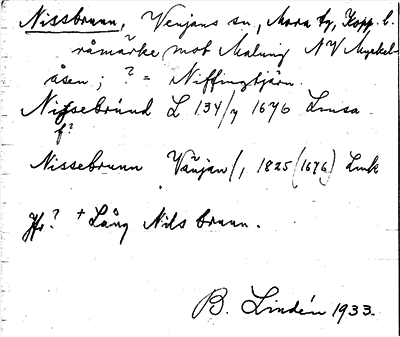 Nissbrunn, Venjans sn, Mora tg, Kopp. l.
råmärke mot Malung NV Myckel-
åsen; ? = Niffingtjärn.
Nissebrúnd L 134/7 1676 Lmsa
f?
Nissebrunn Vänjan 1, 1825 (1676) Lmk
Jfr? + Lång Nils brunn.
B. Lindén 1933.